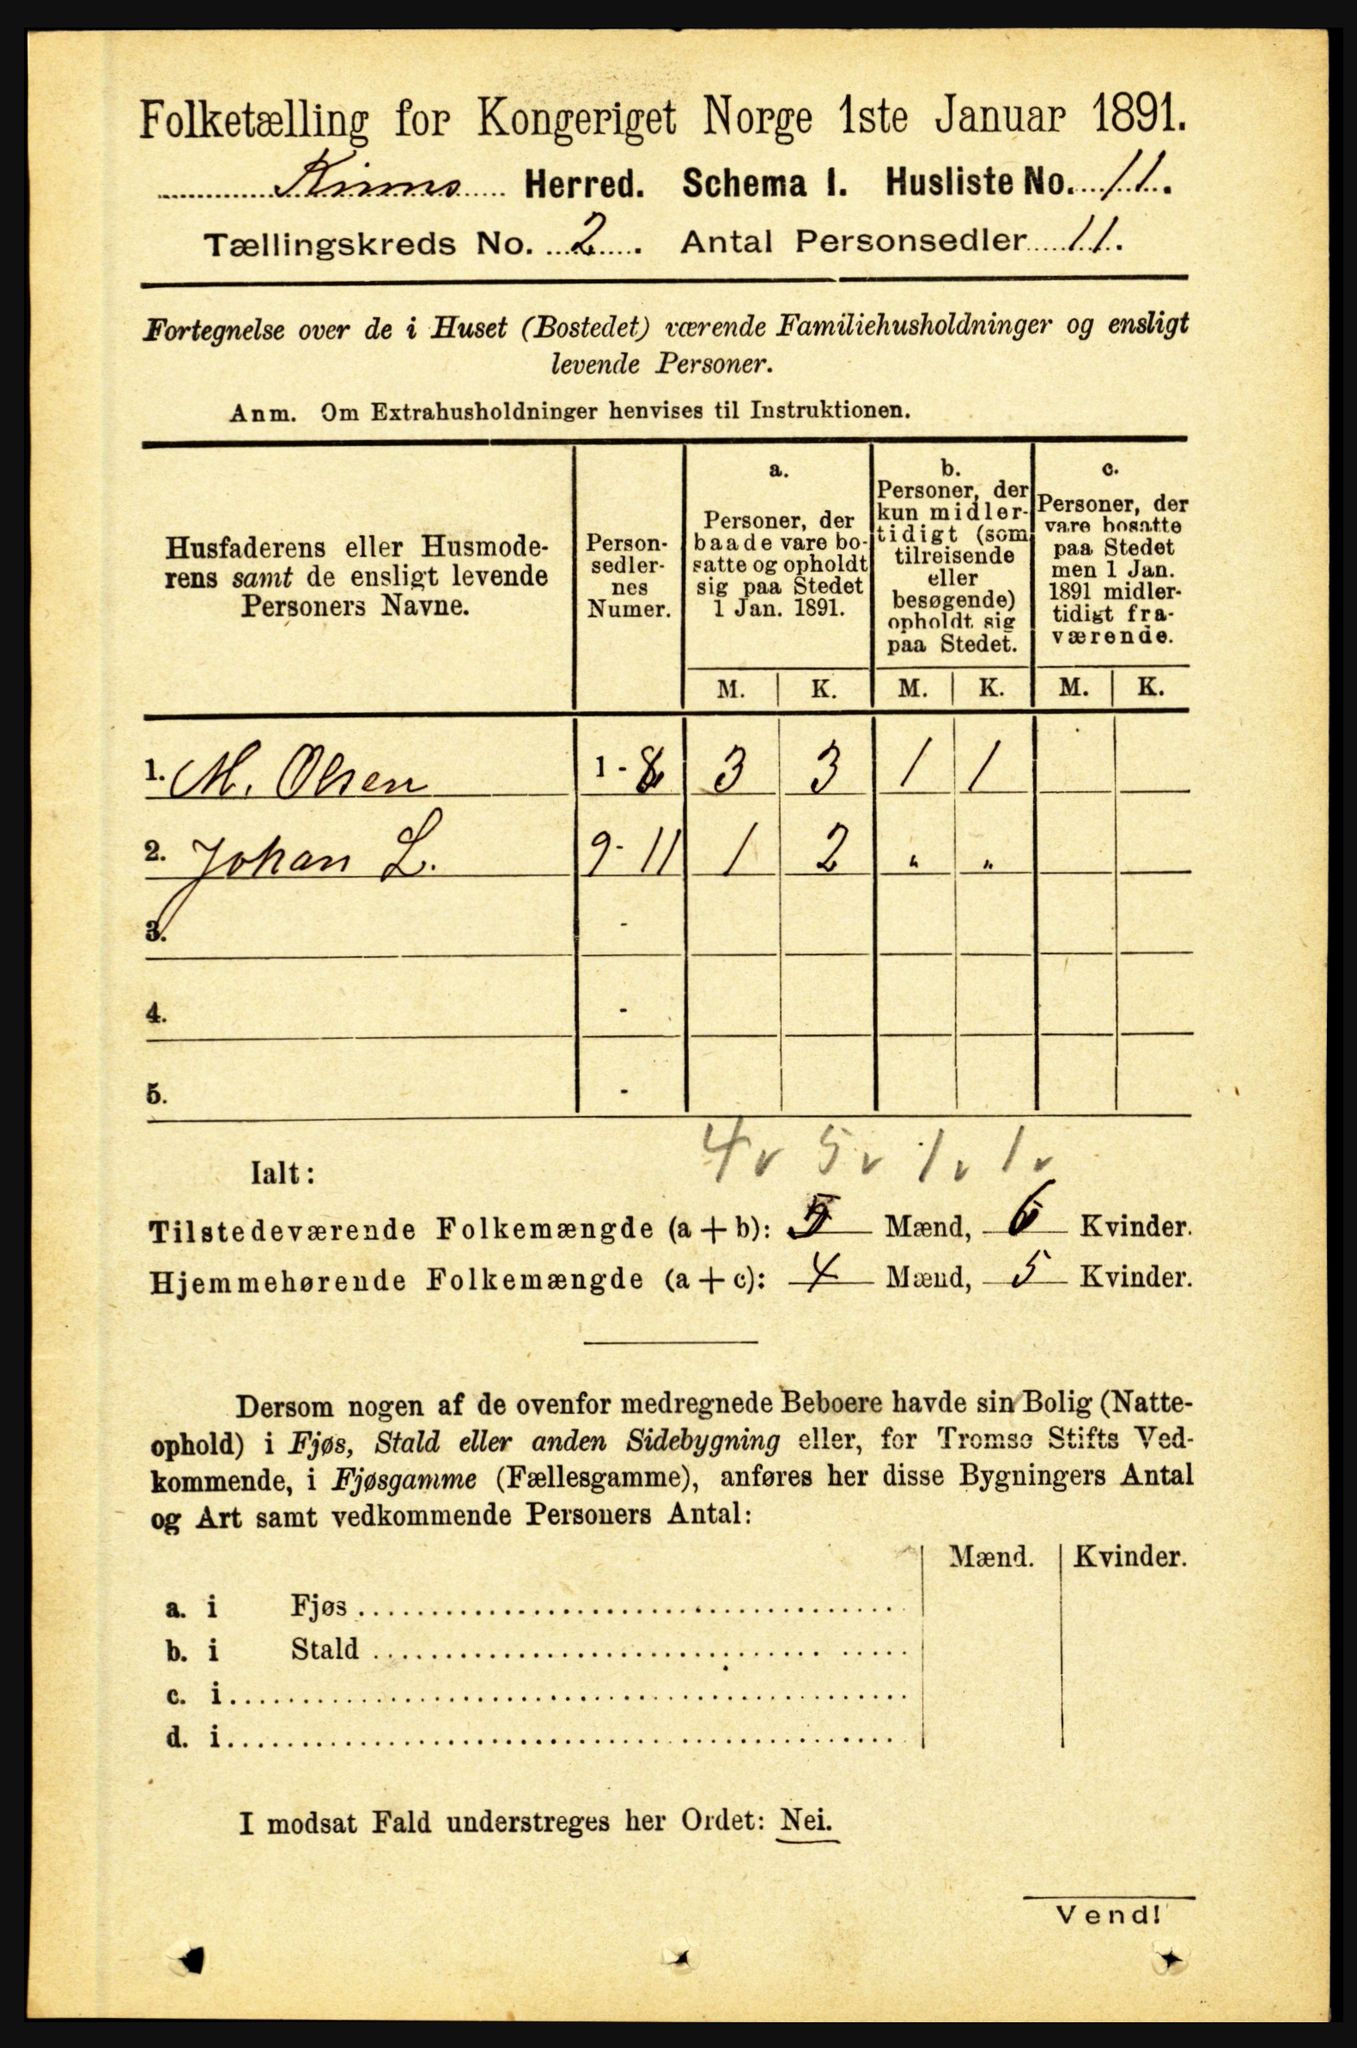 Folketælling for Kongeriget Norge 1ste Januar 1891.
Kinns Herred. Schema I. Husliste No. 11.
Tællingskreds No. 2. Antal Personsedler 11.
Fortegnelse over de i Huset (Bostedet) værende Familiehusholdninger og ensligt
levende Personer.
Anm. Om Extrahusholdninger henvises til Instruktionen.
Husfaderens eller Husmode-
rens samt de ensligt levende
Personers Navne.
Person-
sedler-
nes
Numer.
a.
Personer, der
baade vare bo-
satte og opholdt
sig paa Stedet
1 Jan. 1891.
b.
Personer, der
kun midler-
tidigt (som
tilreisende
eller
besøgende)
opholdt sig
paa Stedet.
c.
Personer, der
vare bosatte
paa Stedet
men 1 Jan.
1891 midler-
tidigt fra-
værende.
M. K. M. K. M. K.
1. M. Olsen 1 - 8 3 3 1 1
2. Johan L. 9 - 11 1 2 " "
3. -
4. -
5. -
4 v 5 v 1 v 1 v
Ialt:
Tilstedeværende Folkemængde (a + b): 5 Mænd, 6 Kvinder.
Hjemmehørende Folkemængde (a + c): 4 Mænd, 5 Kvinder.
Dersom nogen af de ovenfor medregnede Beboere havde sin Bolig (Natte-
ophold) i Fjøs, Stald eller anden Sidebygning eller, for Tromsø Stifts Ved-
kommende, i Fjøsgamme (Fællesgamme), anføres her disse Bygningers Antal
og Art samt vedkommende Personers Antal:
Mænd. Kvinder.
a. i Fjøs
b. i Stald
c. i
d. i
I modsat Fald understreges her Ordet: Nei.
Vend!